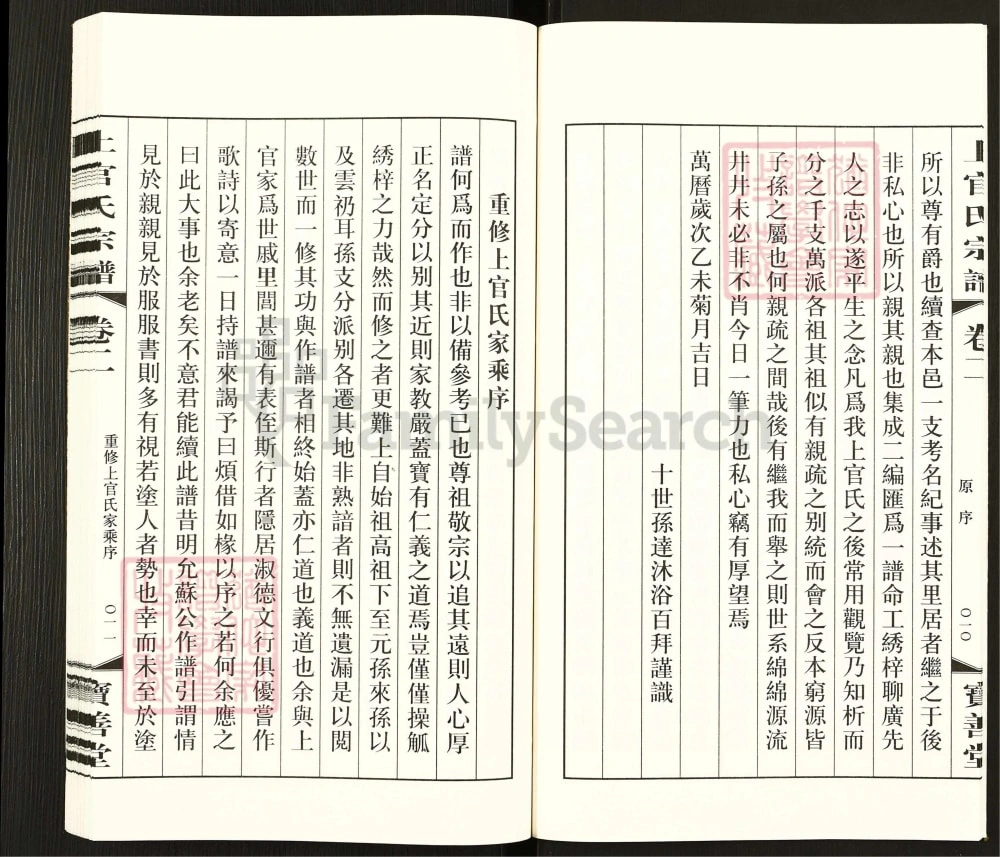 上官氏宗譜
卷二
原序
〇一〇
寶善堂
所以尊有爵也續查本邑一支考名紀事述其里居者繼之于後
非私心也所以親其親也集成二編匯爲一譜命工綉梓聊廣先
人之志以遂平生之念凡爲我上官氏之後常用觀覽乃知析而
分之千支萬派各祖其祖似有親疏之別統而會之反本窮源皆
子孫之屬也何親疏之間哉後有繼我而舉之則世系綿綿源流
井井未必非不肖今日一筆力也私心竊有厚望焉
萬曆歲次乙未菊月吉日
十世孫達沐浴百拜謹識
重修上官氏家乘序
譜何爲而作也非以備參考已也尊祖敬宗以追其遠則人心厚
正名定分以別其近則家教嚴蓋寶有仁義之道焉豈僅僅操觚
綉梓之力哉然而修之者更難上自始祖高祖下至元孫來孫以
及雲礽耳孫支分派別各遷其地非熟諳者則不無遺漏是以閱
數世而一修其功與作譜者相終始蓋亦仁道也義道也余與上
官家爲世戚里閭甚邇有表侄斯行者隱居淑德文行俱優嘗作
歌詩以寄意一日持譜來謁予曰煩借如椽以序之若何余應之
曰此大事也余老矣不意君能續此譜昔明允蘇公作譜引謂情
見於親親見於服服書則多有視若塗人者勢也幸而未至於塗
上官氏宗譜
卷二
重修上官氏家乘序
〇一一
寶善堂
FamilySearch